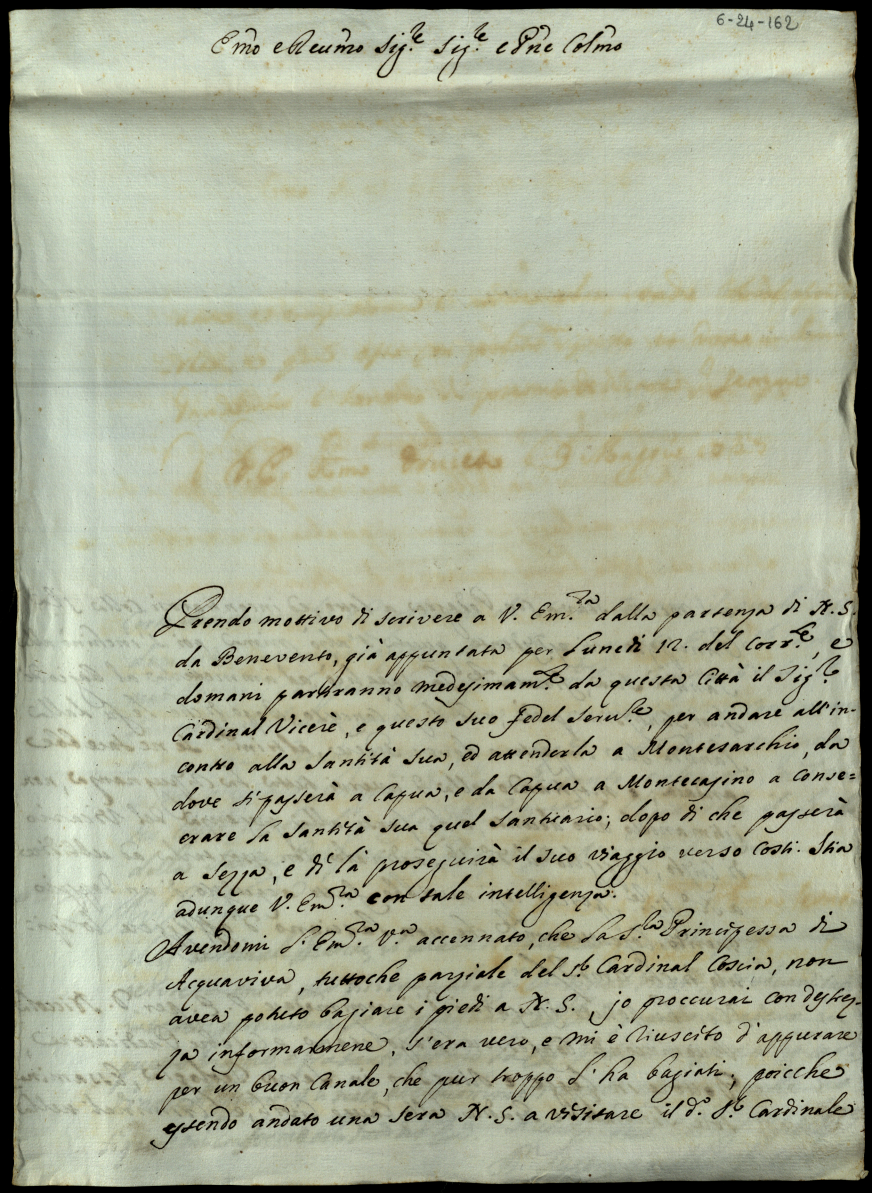 6-24-162
Emo e Reumo Sig.re Sig.re e Pne Colmo
Prendo mottivo di scrivere a V. Em.za dalla partenza di N. S.
da Benevento, già appuntata per Lunedì 12. del Corr.te, e
domani partiranno medesimam.te da questa Città il Sig.re
Cardinal Vicerè, e questo suo fedel seru.re, per andare all'in-
contro alla Santità Sua, ed attenderla a Montesarchio, da
dove si passerà a Capua, e da Capua a Montecasino a Conse=
crare la Santità sua quel Santuario; dopo di che passerà
a Sezza, e di là proseguirà il suo viaggio verso Costì. Stia
adunque V. Em.za con tale intelligenza.
Avendomi l'Em.za V.a accennato, che la S.ra Principessa di
Acquaviva, tuttoche parziale del S.r Cardinal Coscia, non
avea potuto bagiare i piedi a N. S., jo proccurai con destrez-
za informarmene, s'era vero, e mi è riuscito d'appurare
per un buon Canale, che pur troppo l'ha bagiati; poicche
essendo andato una sera N. S. a visitare il d.o S.r Cardinale